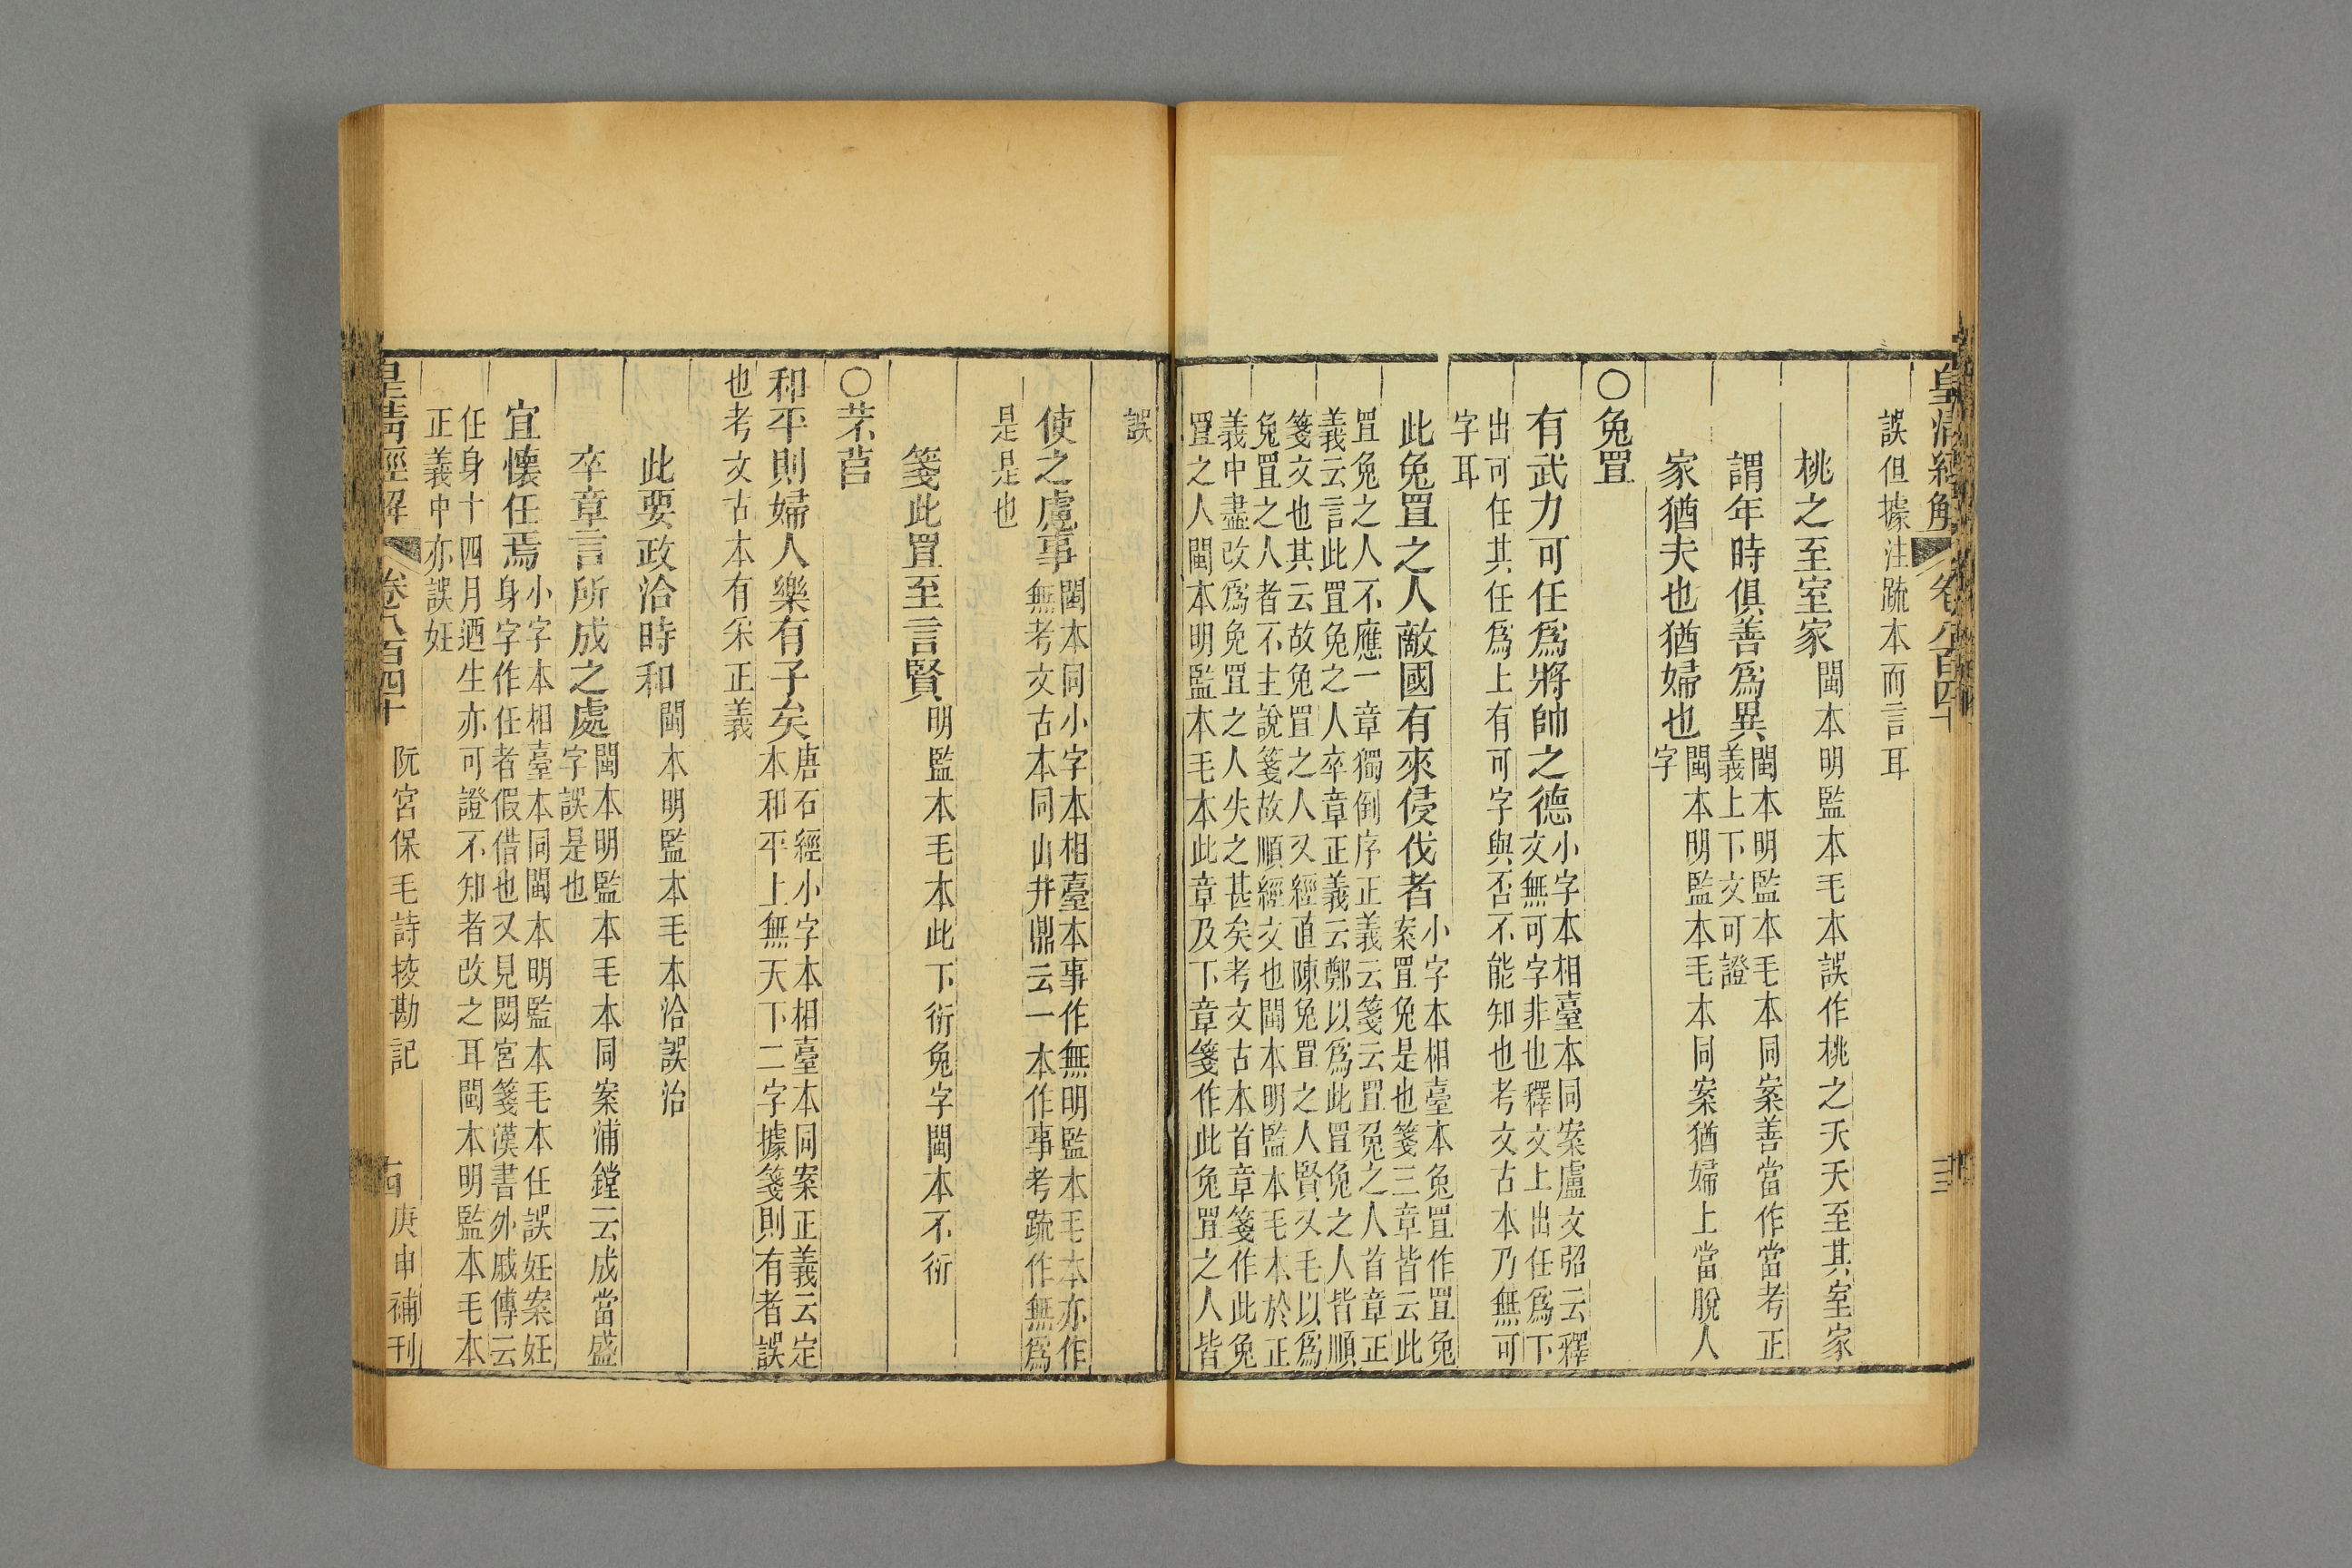 皇清經解 卷八百四十
誤但據注疏本而言耳
桃之至室家 閩本明監本毛本誤作桃之夭夭至其室家
謂年時俱善爲異 閩本明監本毛本同案善當作當考正
義上下文可證
家猶夫也猶婦也 閩本明監本毛本同案猶婦上當脫人
字
○兔罝
有武力可任爲將帥之德 小字本相臺本同案盧文弨云釋
文無可字非也釋文上出任爲下
出可任其任爲上有可字與否不能知也考文古本乃無可
字耳
此兔罝之人敵國有來侵伐者 小字本相臺本兔罝作罝兔
案罝兔是也箋三章皆云此
罝兔之人不應一章獨倒序正義云箋云罝兔之人首章正
義云言此罝兔之人卒章正義云鄭以爲此罝兔之人皆順
箋文也其云故兔罝之人又經直陳兔罝之人賢又毛以爲
兔罝之人者不主說箋故順經文也閩本明監本毛本於正
義中盡改爲兔罝之人失之甚矣考文古本首章箋作此兔
罝之人閩本明監本毛本此章及下章箋作此兔罝之人皆
誤
使之慮事 閩本同小字本相臺本事作無明監本毛本亦作
無考文古本同山井鼎云一本作事考疏作無爲
是是也
箋此罝至言賢 明監本毛本此下衍兔字閩本不衍
○芣苢
和平則婦人樂有子矣 唐石經小字本相臺本同案正義云定
本和平上無天下二字據箋則有者誤
也考文古本有采正義
此要政洽時和 閩本明監本毛本洽誤治
卒章言所成之處 閩本明監本毛本同案浦鏜云成當盛
字誤是也
宜懷任焉 小字本相臺本同閩本明監本毛本任誤妊案妊
身字作任者假借也又見閟宮箋漢書外戚傳云
任身十四月迺生亦可證不知者改之耳閩本明監本毛本
正義中亦誤妊
皇清經解 卷八百四十 阮宮保毛詩挍勘記 庚申補刊